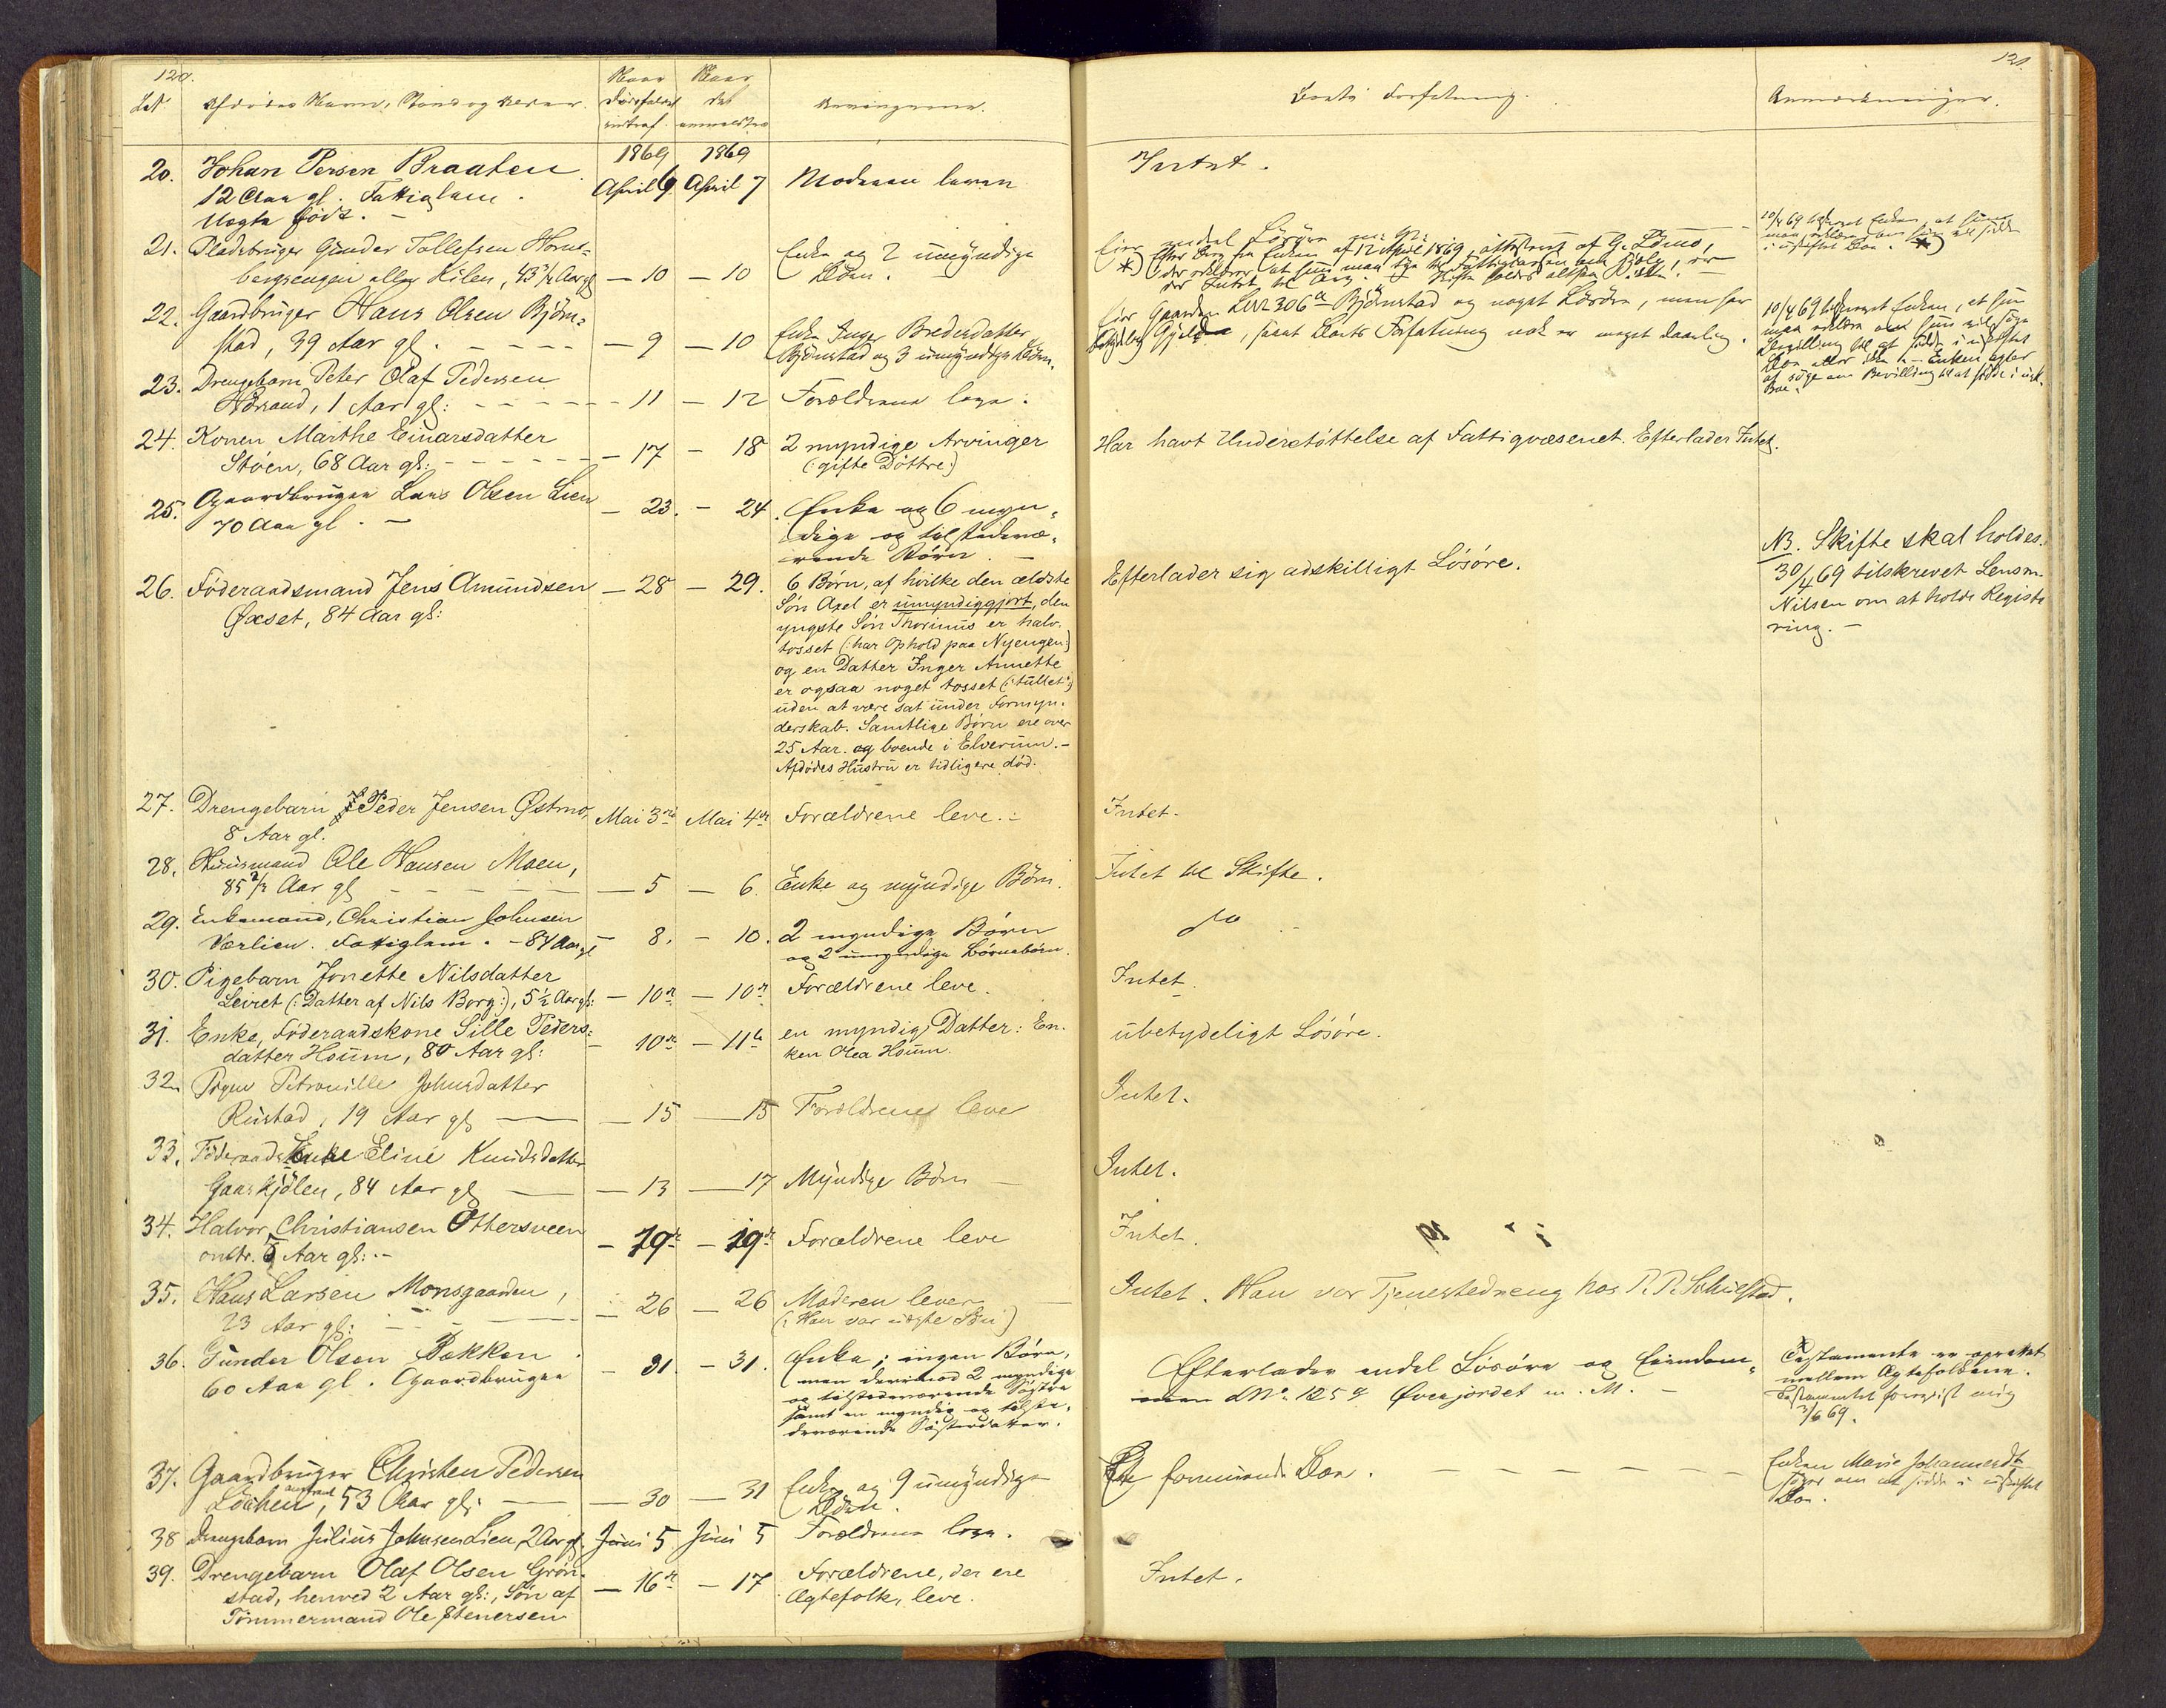 120.
LNo. Afdödes Navn, Stand og Alder. Naar Dödsfaldet indtraf. Naar det anmeldtes Arvingerne.
1869 1869
20. Johan Persen Braaten April 6 April 7 Moderen lever
12 Aar gl. Fattiglem.
Uægte född.
21. Pladsbruger Gunder Tollefsen Horne-
bergsengen eller Kilen, 43 1/2 Aar gl — 10 — 10 Enke og 2 umyndige
Börn.
22. Gaardbruger Hans Olsen Björn-
stad, 39 Aar gl. — 9 — 10 Enke Inger Bredesdatter
Björnstad og 3 umyndige Börn.
23. Drengebarn Peter Olaf Pedersen
1 Aar gl: — 11 — 12 Forældrene leve.
24. Konen Marthe Einarsdatter
Støen, 68 Aar gl: — 17 — 18 2 myndige Arvinger
(: gifte Döttre:)
25. Gaardbruger Lars Olsen Lien
70 Aar gl. — 23. — 24. Enke og 6 myn-
dige og tilstedevæ-
rende Börn.
26. Föderaadsmand Jens Amundsen — 28 — 29. 6 Börn, af hvilke den ældste
Øxset, 84 Aar gl: Sön Axel er umyndiggjort, den
yngste Sön Thorinus er halv-
tosset (: har Ophold paa Nyengen:)
og en Datter Inger Annette
er ogsaa noget tosset (: tullet:)
uden at være sat under Formyn-
derskab. Samtlige Börn ere over
25 Aar. og boende i Elverum.—
Afdödes Hustru er tidligere död.
27. Drengebarn Peder Jensen Østmo, Mai 3die Mai 4de Forældrene leve.
8 Aar gl.
28. Huusmand Ole Hansen Moen,
85 1/2 Aar gl — 5 — 6. Enke og myndige Börn.
29. Enkemand, Christian Johnsen
Værlien. Fattiglem. — 84 Aar gl — 8. — 10. 2 myndige Börn
og 2 umyndige Börnebörn.
30. Pigebarn Jonette Nilsdatter
Leiret (: Datter af Nils Borg:), 5 1/2 Aar gl: — 10de — 10de Forældrene leve.
31. Enke, Föderaadskone Sille Peders-
datter Houm, 80 Aar gl: — 10de — 11te en myndig Datter: En-
ken Olea Houm.
32. Pigen Petronille Johnsdatter
Rustad, 19 Aar gl — 15 — 15 Forældrene leve
33. Föderaads Enke Eline Knudsdatter
Gaaskjölen, 84 Aar gl — 13 — 17 Myndige Börn
34. Halvor Christiansen Ottersveen
omtr. 5 Aar gl:— — 19de — 19de Forældrene leve
35. Hans Larsen Monsgaarden,
23 Aar gl: — 26 — 26 Moderen lever
(: Han var uægte Sön)
36. Gunder Olsen Bakken
60 Aar gl. Gaardbruger — 31. — 31. Enke; ingen Börn,
men derimod 2 myndige
og tilstedeværende Söstre
samt en myndig og tilste-
deværende Sösterdatter.
37. Gaardbruger Christen Pedersen
Löchen, 53 Aar gl: — 30 — 31 Enke og 9 umyndige
Börn.
38 Drengebarn Julius Johnsen Lien, 2 Aar gl. Juni 5. Juni 5 Forældrene leve.
39. Drengebarn Olaf Olsen Grön-
stad, henved 2 Aar gl:, Sön af — 16de — 17 Forældrene, der ere
Tömmermand Ole Stenersen Ægtefolk, leve.
121.
Boets Forfatning. Anmærkninger.
Intet.
Eier endel Lösöre
*) Efter Brev fra Enken af 12 April 1869, attesteret af G. Lömo,
der erklærer at hun maa tye til Fattigkassen om Hjælp, er
der Intet til Arv. Skifte holdes altsaa ikke.
10/4 69 tilskrevet Enken, at hun
maa erklære om hun vil sidde
i uskiftet Boe. *)
Eier Gaarden LNr 306a Björnstad og noget Lösöre, men har
betydelig Gjeld, saaat Boets Forfatning nok er meget daarlig.
10/4 69 tilskrevet Enken, at hun
maa erklære om hun vil söge
Bevilling til at sidde i uskiftet
Boe eller ikke. — Enken agter
at söge om Bevilling til at sidde i usk.
Boe.
Har havt Understöttelse af Fattigvæsenet. Efterlader Intet.
Efterlader sig adskilligt Lösöre.
NB. Skifte skal holdes.
30/4 69 tilskrevet Lensm.
Nilsen om at holde Registe
ring.—
Intet.
Intet til Skifte.
do
Intet.
ubetydeligt Lösöre.
Intet.
Intet.
Intet.
Intet. Han var Tjenestedreng hos P. P. Schulstad.
Efterlader endel Lösöre og Eiendom-
men LNo. 125 Øvergjordet m. M.—
Testamente er oprettet
mellem Ægtefolkene.
Testamentet forevist mig
3/6 69.
formuende Boe.
Enken Marie Johannesdt
söger om at sidde i uskiftet
Boe.
Intet.